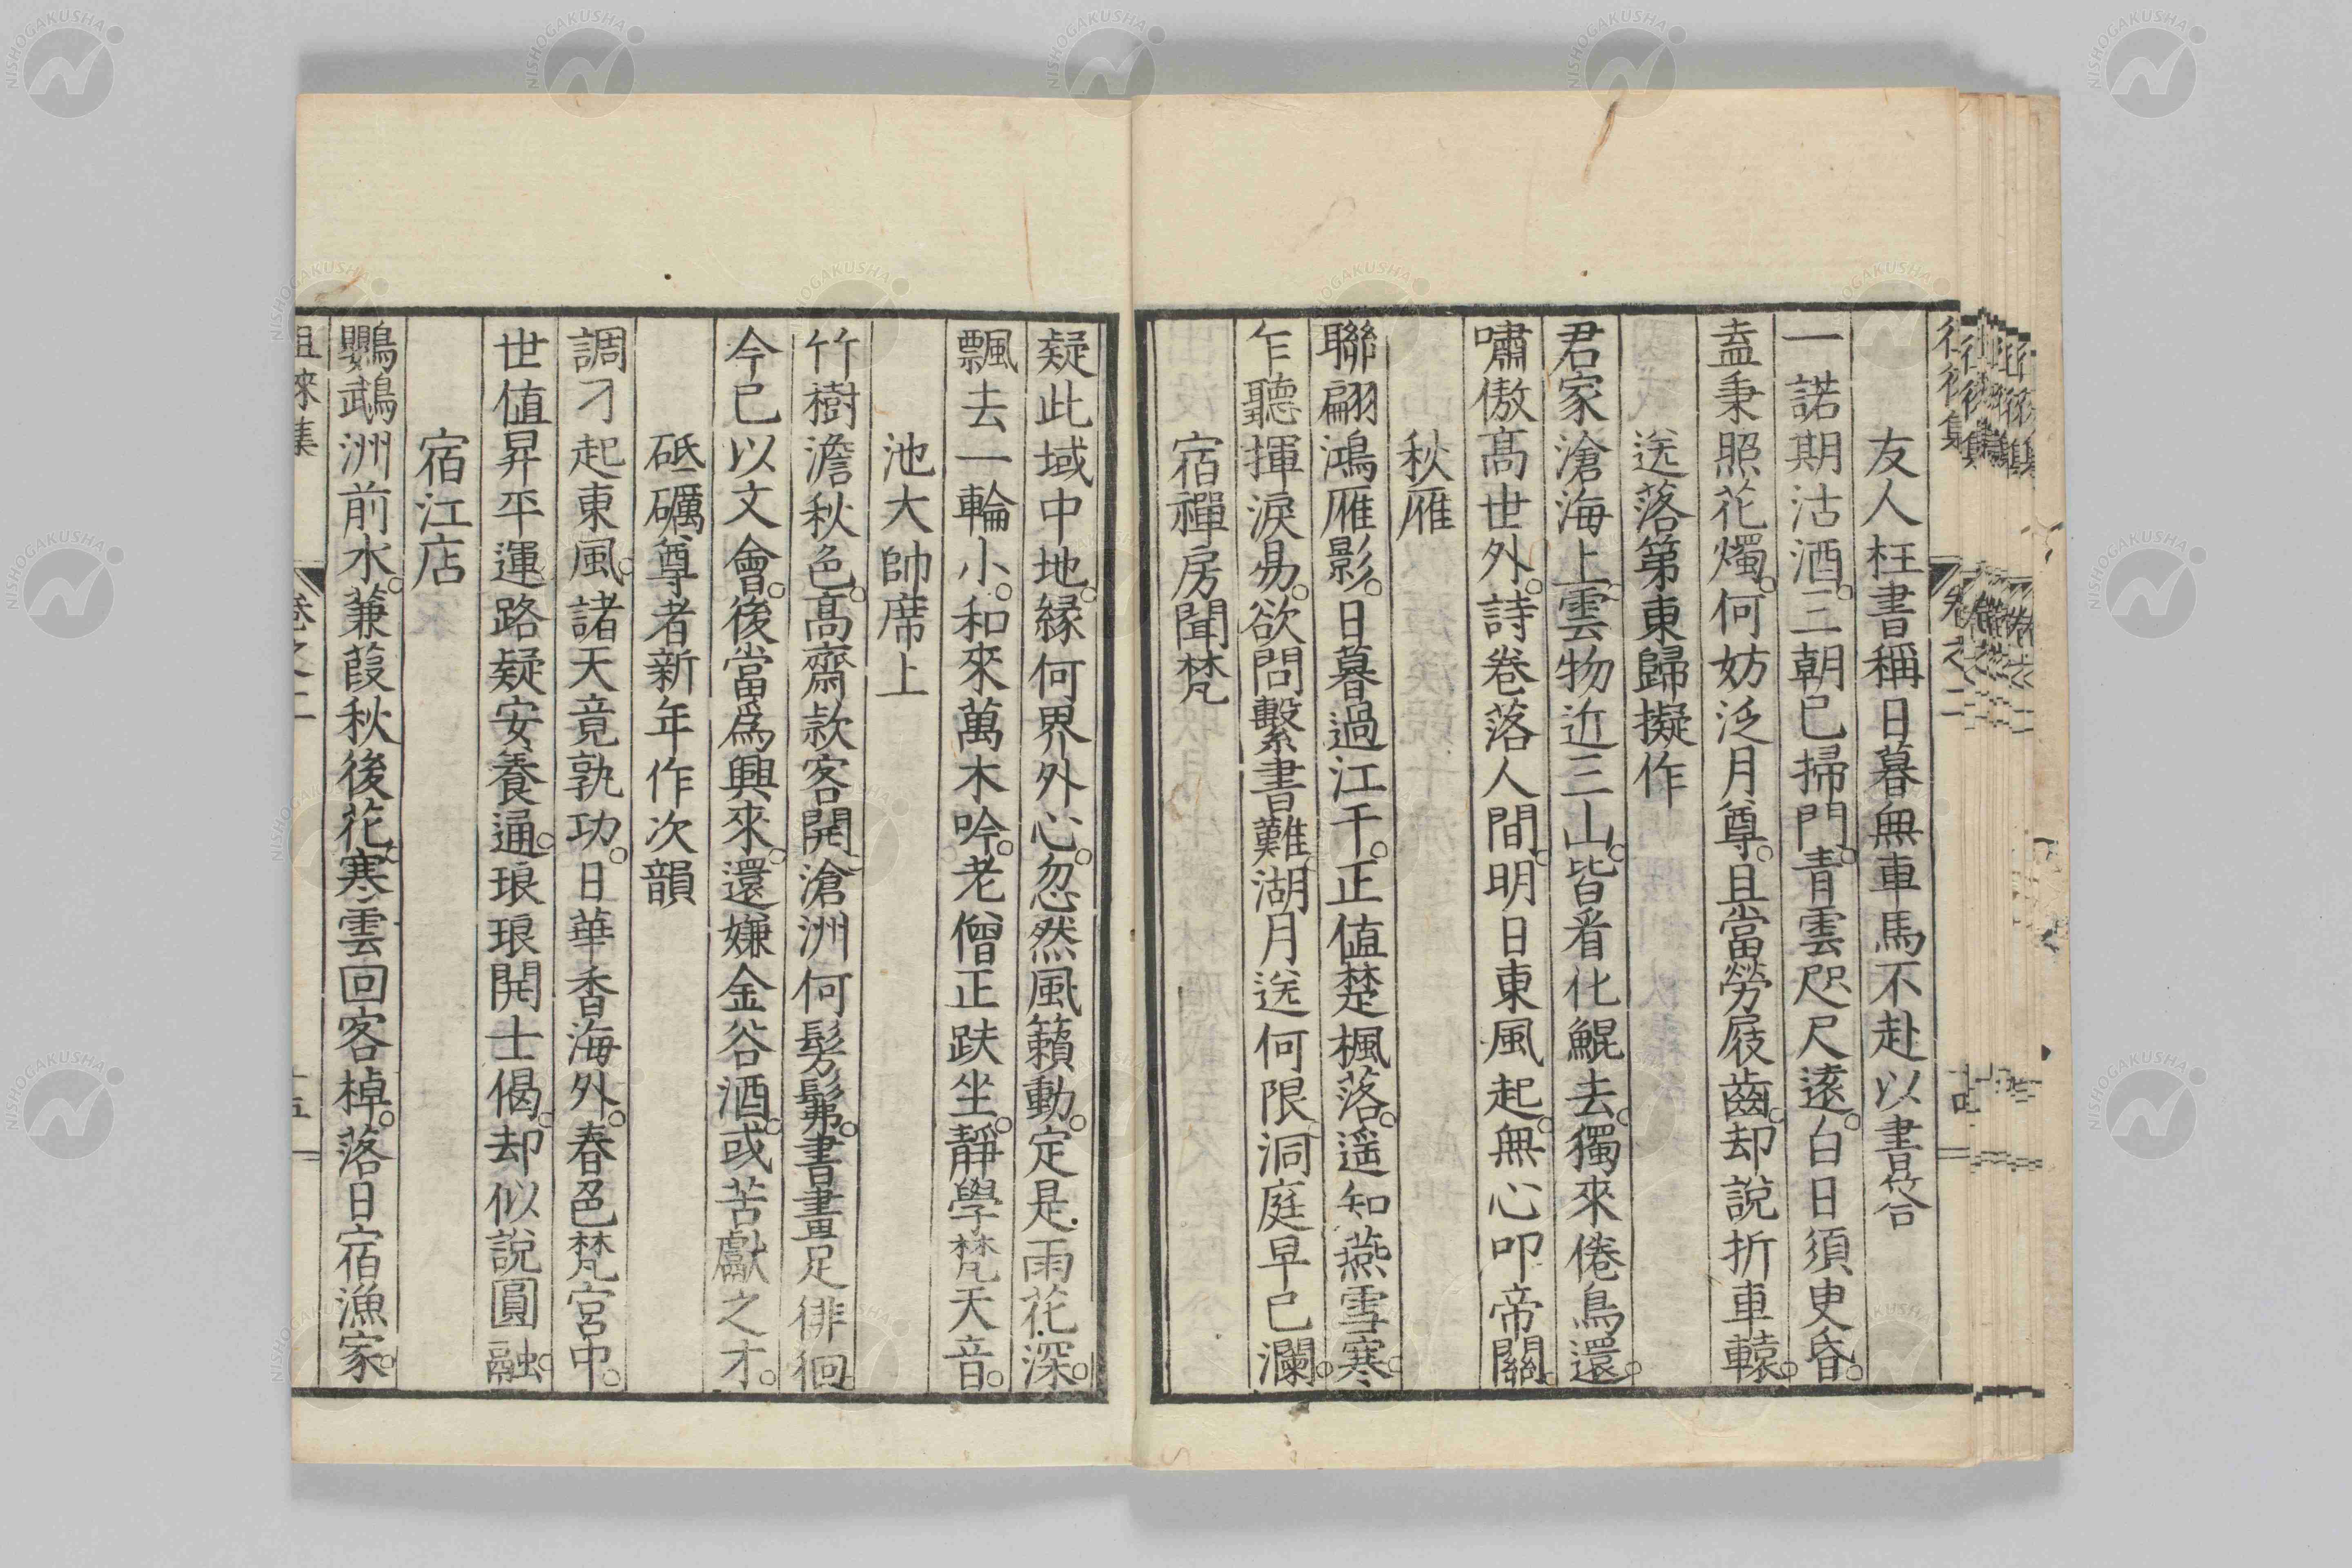 友人枉書稱日暮無車馬不赴以書答
一諾期沽酒。三朝已掃門。青雲咫尺遠。白日須臾昏。
盍秉照花燭。何妨泛月尊。且當勞屐齒。却說折車轅。
送落第東歸擬作
君家滄海上。雲物近三山。皆看化鯤去。獨來倦鳥還。
嘯傲髙世外。詩卷落人間。明日東風起。無心叩帝關。
秋雁
聯翩鴻雁影。日暮過江干。正値楚楓落。遥知燕雪寒。
乍聽揮淚易。欲問繫書難。湖月送何限。洞庭早已瀾。
宿禪房聞梵
疑此域中地。縁何界外心。忽然風籟動。定是雨花深。
飄去一輪小。和來萬木吟。老僧正趺坐。靜學梵天音。
池大帥席上
竹樹澹秋色。髙齋款客開。滄洲何髣髴。書畫足徘徊。
今已以文會。後當爲興來。還嫌金谷酒。或苦獻之才。
砥礪尊者新年作次韻
調刁起東風。諸天竟孰功。日華香海外。春色梵宮中。
世値昇平運。路疑安養通。琅琅開士偈。却似說圓融。
宿江店
鸚鵡洲前水。蒹葭秋後花。寒雲回客棹。落日宿漁家。
徂徠集 卷之二 十五